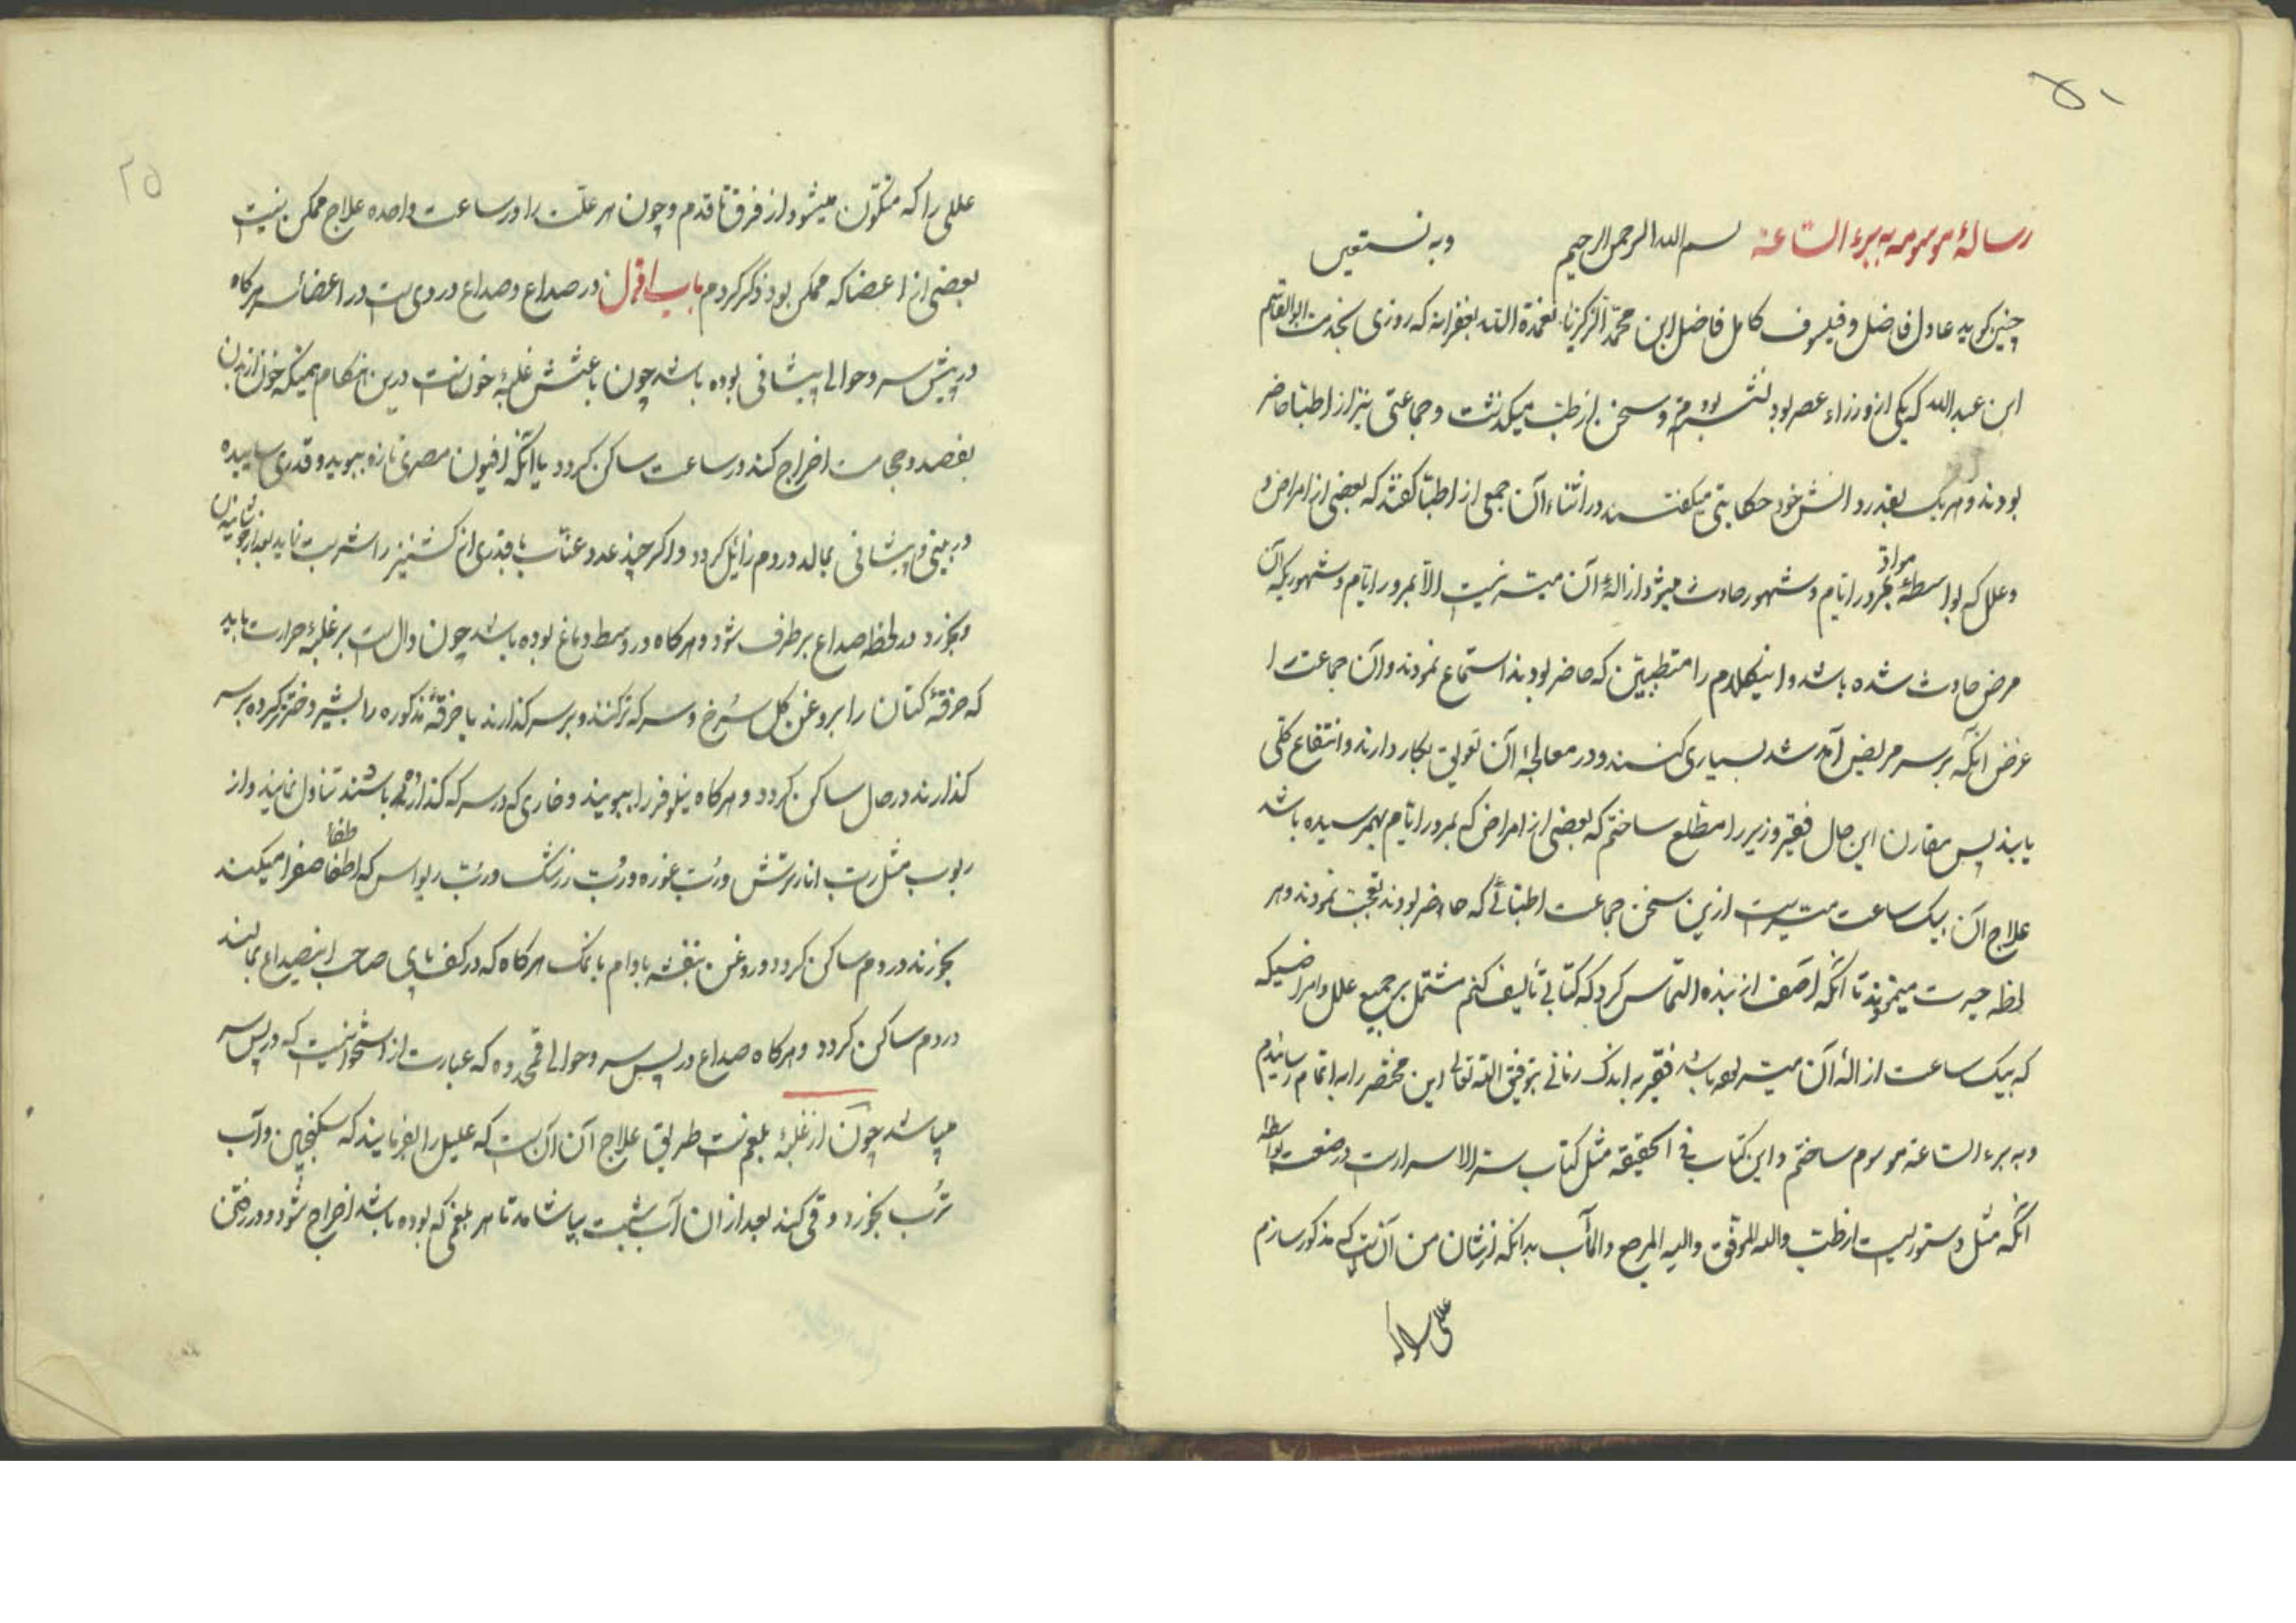 ۵۱
رسالهٔ موسومه ببرء الساعة بسم الله الرحمن الرحیم وبه نستعین
چنین کوید عادل فاضل و فیلسوف کامل فاضل ابن محمد الزکریا تغمده الله بغفرانه که روزی بخدمت ابوالقاسم
ابن عبدالله که یکی از وزراء عصر بود نشسته بودم و سخن از طب میکذشت و جماعتی نیز از اطبا حاضر
بودند و هر یک بقدر دانش خود حکایتی میکفتند در اثناء آن جمعی از اطبا کفتند که بعضی از امراض
و علل که بواسطهٔ مواد بمرور ایام و شهور حادث میشود ازالهٔ آن میسر نیست الا بمرور ایام و شهوریکه آن
مرض حادث شده باشد و اینکلام را متطببین که حاضر بودند استماع نمودند و آن جماعت را
غرض آنکه بر سر مریض آمد شد بسیاری کنند و در معالجهٔ آن تعویق بکار دارند و انتفاع کلی
یابند پس مقارن این حال فقیر وزیر را مطلع ساختم که بعضی از امراض که بمرور ایام بهم رسیده باشد
علاج آن بیک ساعت میسر است ازین سخن جماعت اطبائی که حاضر بودند تعجب نمودند و هر
لحظه حیرت مینمودند تا آنکه آصف از بنده التماس کرد که کتابی تألیف کنم مشتمل بر جمیع علل و امراضیکه
که بیک ساعت ازالهٔ آن میسر بوده باشد فقیر به اندک زمانی بتوفیق الله تعالی این مختصر را به اتمام رسانیدم
و به برء الساعة موسوم ساختم و این کتاب فی الحقیقه مثل کتاب سر الاسرار است در صنعت بواسطهٔ
آنکه مثل دستوریست از طب والله الموفق والیه المرجع والمآب بدانکه از شان من آنست که مذکور سازم
عللی را که
۲۵
عللی را که متکون میشود از فرق تا قدم و چون هر علت را در ساعت واحده علاج ممکن نیست
بعضی از اعضا که ممکن بود ذکر کردم باب اول در صداع و صداع دردی است در اعضاء سر هرکاه
در پیش سر و حوالی پیشانی بوده باشد چون باعثش غلبهٔ خونست درین هنکام همینکه خون از بدن
بفصد و حجامت اخراج کند در ساعت ساکن کردد یا آنکه افیون مصری تازه ببوید و قدری ساییده
در بینی و پیشانی بمالد در دم زائل کردد و اکر چند عدد عناب با قدری از کشنیز را شربت نماید بعد از جوشانیدن
و بخورد در لحظه صداع برطرف شود و هرکاه در وسط دماغ بوده باشد چون دال است بر غلبهٔ حرارت باید
که خرقهٔ کتان را بروغن کل سرخ و سرکه تر کنند و بر سر کذارند یا خرقهٔ مذکوره را بشیر دختر تر کرده بر سر
کذارند در حال ساکن کردد و هرکاه نیلوفر را ببویند و خاری که در سرکه کذارده باشند تناول نمایند و از
ربوب مثل رب انار ترش و رب غوره و رب زرشک و رب ریواس که اطفا طفا صفرا میکند
بخورند در دم ساکن کردد و روغن بنفشه بادام با نمک هرکاه که در کف پای صاحب اینصداع بمالند
در دم ساکن کردد و هرکاه صداع در پس سر و حوالی قمحدوه که عبارت از استخوانیست که در پس سر
میباشد چون از غلبهٔ بلغمست طریق علاج آن آن است که علیل را بفرمایند که سکنجبین و آب
ترب بخورد و قی کند بعد از آن آب شبت بیاشامد تا هر بلغمی که بوده باشد اخراج شود و در رختن